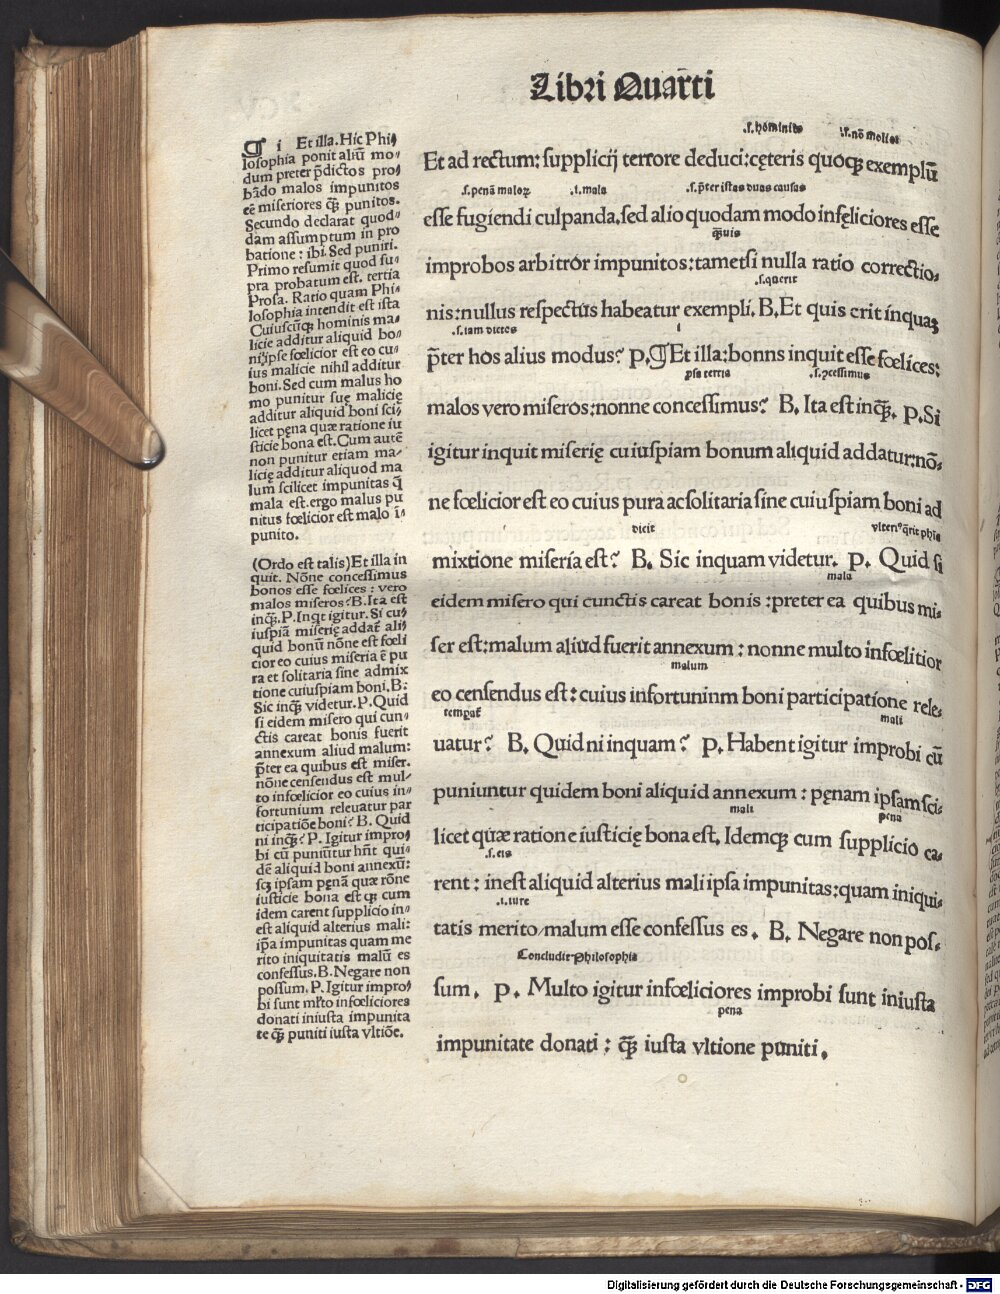 Libri Quarti
¶ i Et illa. Hic Phi⸗
losophia ponit aliū mo⸗
dum preter p̄dictos pro⸗
bādo malos impunitos
eē miseriores q̄ꝫ punitos.
Secundo declarat quod⸗
dam assumptum in pro
batione : ibi. Sed puniri.
Primo resumit quod su⸗
pra probatum est. tertia
Prosa. Ratio quam Phi⸗
losophia intendit est ista
Cuiuscūqꝫ hominis ma⸗
licie additur aliquid bo⸗
ni: ipse fœlicior est eo cu⸗
ius malicie nihil additur
boni. Sed cum malus ho
mo punitur suę malicię
additur aliquid boni sci⸗
licet pęna quæ ratione iu
sticie bona est. Cum autē
non punitur etiam ma⸗
licię additur aliquod ma
lum scilicet impunitas q̄
mala est. ergo malus pu
nitus fœlicior est malo ī⸗
punito.
(Ordo est talis) Et illa in
quit. Nōne concessimus
bonos esse fœlices : vero
malos miseros? B. Ita est
inqꝫ. P. Inqt igitur. Si cu⸗
iuspiā miserię addat̄ ali⸗
quid bonū nōne est fœli
cior eo cuius miseria ē pu
ra et solitaria sine admix
tione cuiuspiam boni. B:
Sic inqꝫ videtur. P. Quid
si eidem misero qui cun⸗
ctis careat bonis fuerit
annexum aliud malum:
p̄ter ea quibus est miser.
nōne censendus est mul⸗
to infœlicior eo cuius in⸗
fortunium releuatur par
ticipatiōe boni? B. Quid
ni inqꝫ? P. Igitur impro⸗
bi cū puniūtur hn̄t qui⸗
dē aliquid boni annexū:
scꝫ ipsam pęnā quæ rōne
iusticie bona est qꝫ cum
idem carent supplicio in⸗
est aliquid alterius mali:
ip̄a impunitas quam me
rito iniquitatis malū es
confessus. B. Negare non
possum. P. Igitur impro⸗
bi sunt ml̄to infœliciores
donati iniusta impunita
te q̄ꝫ puniti iusta vltiōe.
.s. hominibꝰ .s. nō molliet
Et ad rectum: supplicij terrore deduci: cęteris quoqꝫ exemplū
.s. penā maloꝝ .i. mala .s. p̄ter istas duas causas
esse fugiendi culpanda. sed alio quodam modo infęliciores esse
q̄uis
improbos arbitror impunitos: tametsi nulla ratio correctio⸗
.s. querit
nis: nullus respectus habeatur exempli. B. Et quis erit inquaꝫ
.s. iam dictos i
p̄ter hos alius modus? P. ¶ Et illa: bonns inquit esse fœlices:
psa tertia .s. ꝯcessimus
malos vero miseros: nonne concessimus? B. Ita est inq̄ꝫ. P. Si
igitur inquit miserię cuiuspiam bonum aliquid addatur: nō⸗
ne fœlicior est eo cuius pura ac solitaria sine cuiuspiam boni ad
dicit vlteriꝰ q̄rit phīa
mixtione miseria est? B. Sic inquam videtur. P. Quid si
mala
eidem misero qui cunctis careat bonis : preter ea quibus mi⸗
ser est: malum aliud fuerit annexum : nonne multo infœlitior
malum
eo censendus est : cuius infortuninm boni participatione rele⸗
temꝑat̄ mali
uatur? B. Quid ni inquam? P. Habent igitur improbi cū
puniuntur quidem boni aliquid annexum : pęnam ipsam sci⸗
mali pena
licet quæ ratione iusticię bona est. Idemqꝫ cum supplicio ca⸗
.s. eis
rent : inest aliquid alterius mali ipsa impunitas: quam iniqui⸗
.i. iure
tatis merito/malum esse confessus es. B. Negare non pos⸗
Concludit Philosophia
sum. P. Multo igitur infœliciores improbi sunt iniusta
pena
impunitate donati : q̄ꝫ iusta vltione puniti.
Digitalisierung gefördert durch die Deutsche Forschungsgemeinschaft - DFG